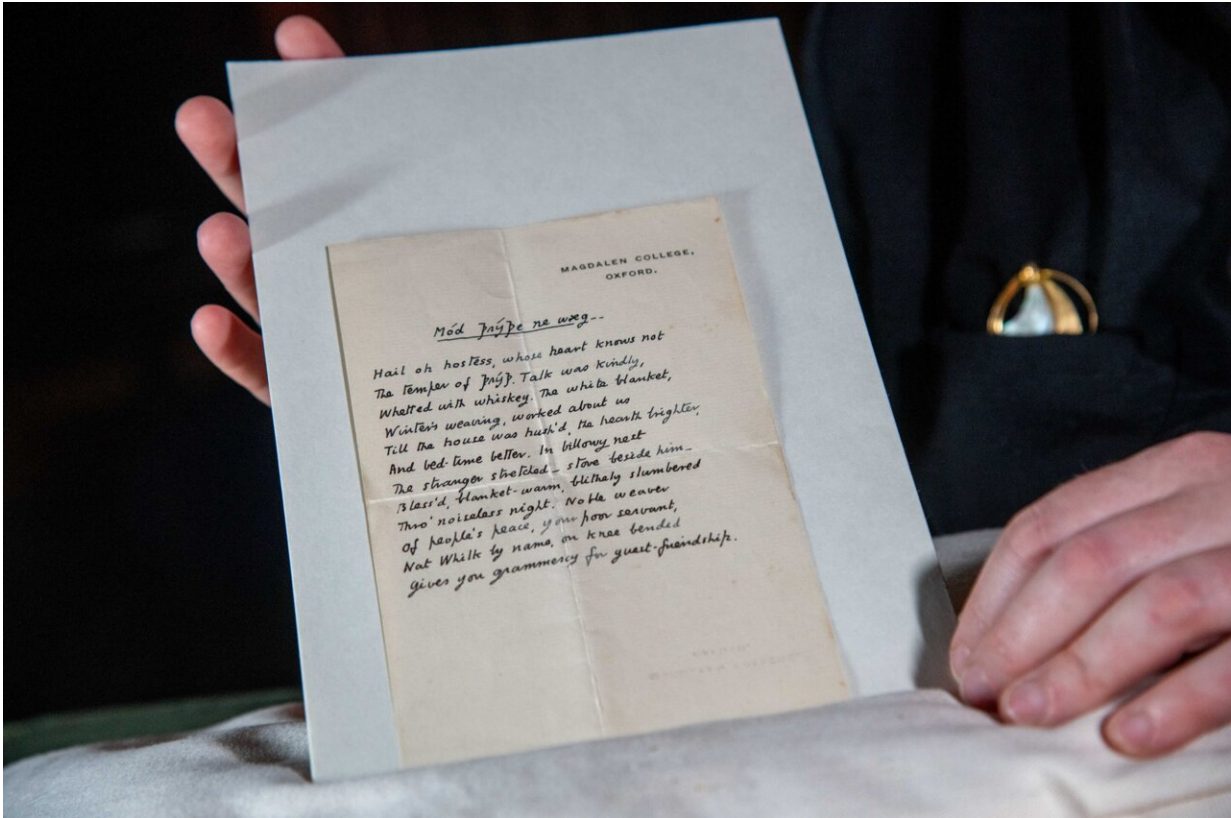 MAGDALEN COLLEGE,
OXFORD.
Mód Þrýþe ne wæg--
Hail oh hostess, whose heart knows not
The temper of Þrýþ. Talk was kindly,
Whetted with whiskey. The white blanket,
Winter's weaving, worked about us
Till the house was hush'd, the hearth brighter,
And bed-time better. In billowy nest
The stranger stretched – stove beside him –
Bless'd, blanket-warm, blithely slumbered
Thro' noiseless night. Noble weaver
Of people's peace, your poor servant,
Nat Whilk by name, on knee bended
Gives you grammercy for guest-friendship.